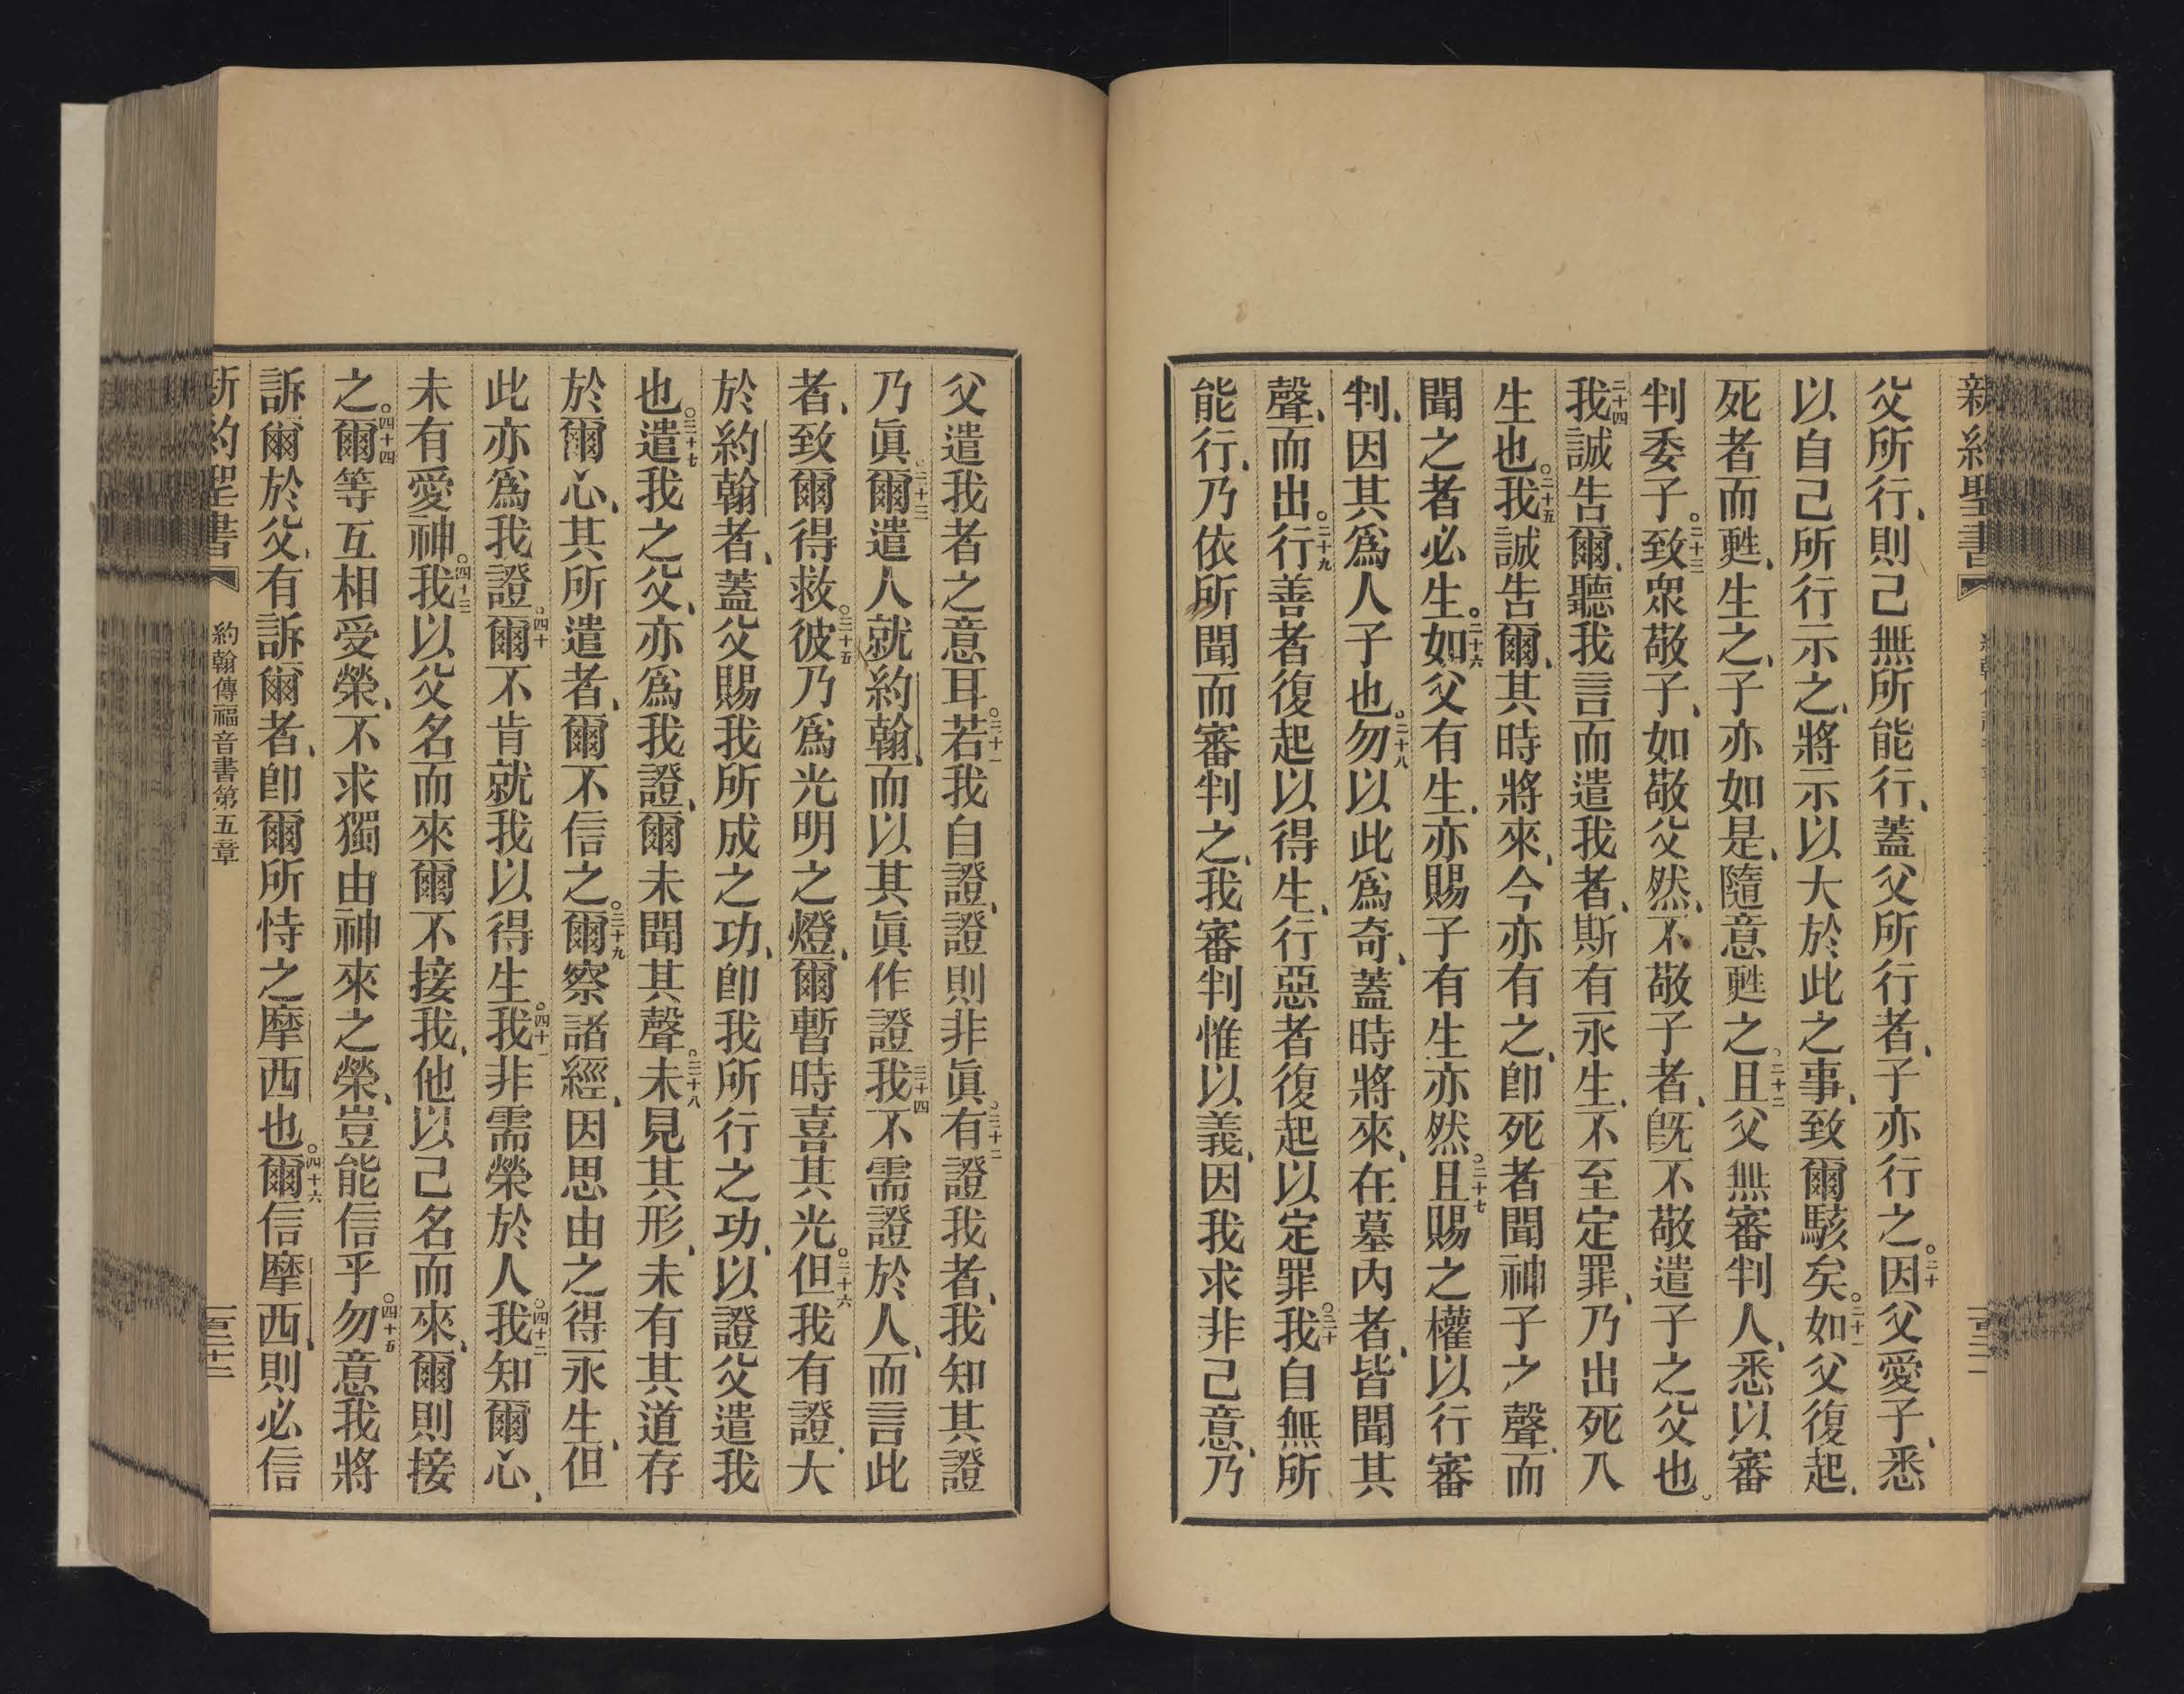 新約聖書
父所行、則己無所能行、蓋父所行者、子亦行之。二十因父愛子、悉
以自己所行示之、將示以大於此之事、致爾駭矣。二十一如父復起、
死者而甦、生之、子亦如是、隨意甦之。二十二且父無審判人、悉以審
判委子。二十三致眾敬子、如敬父然、不敬子者、旣不敬遣子之父也。
二十四我誠告爾、聽我言而遣我者、斯有永生、不至定罪、乃出死入
生也。二十五我誠告爾、其時將來、今亦有之、卽死者聞神子之聲、而
聞之者必生。二十六如父有生、亦賜子有生亦然。二十七且賜之權以行審
判、因其爲人子也。二十八勿以此爲奇、蓋時將來、在墓內者、皆聞其
聲、而出。二十九行善者復起以得生、行惡者復起以定罪。三十我自無所
能行、乃依所聞而審判之、我審判惟以義、因我求非己意、乃
父遣我者之意耳。三十一若我自證、證則非眞。三十二有證我者、我知其證
乃眞。三十三爾遣人就約翰、而以其眞作證。三十四我不需證於人、而言此
者、致爾得救。三十五彼乃爲光明之燈、爾暫時喜其光。三十六但我有證、大
於約翰者、蓋父賜我所成之功、卽我所行之功、以證父遣我
也。三十七遣我之父、亦爲我證、爾未聞其聲。三十八未見其形、未有其道存
於爾心、其所遣者、爾不信之。三十九爾察諸經、因思由之得永生、但
此亦爲我證。四十爾不肯就我以得生。四十一我非需榮於人。四十二我知爾心、
未有愛神。四十三我以父名而來爾不接我、他以己名而來、爾則接
之。四十四爾等互相受榮、不求獨由神來之榮、豈能信乎。四十五勿意我將
訴爾於父、有訴爾者、卽爾所恃之摩西也。四十六爾信摩西、則必信
新約聖書 約翰傳福音書第五章 一百三十三